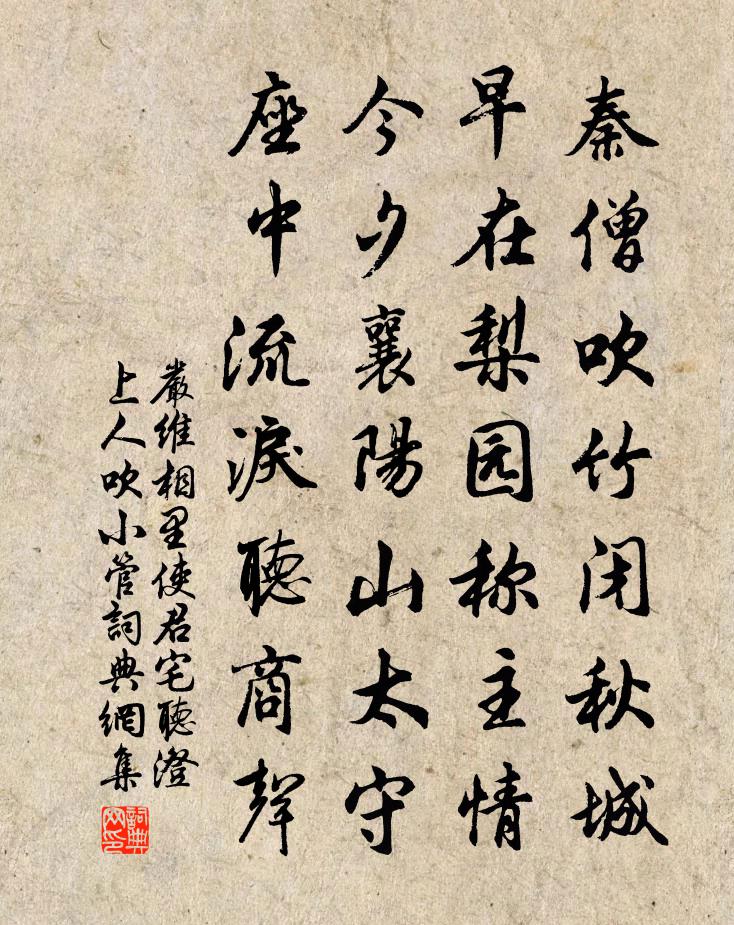 秦僧吹竹闭秋城
早在梨园称主情
今夕襄陽山太守
座中流淚聽商聲
嚴維相里使君宅聽澄
上人吹小管詞典網集
詞典
网印